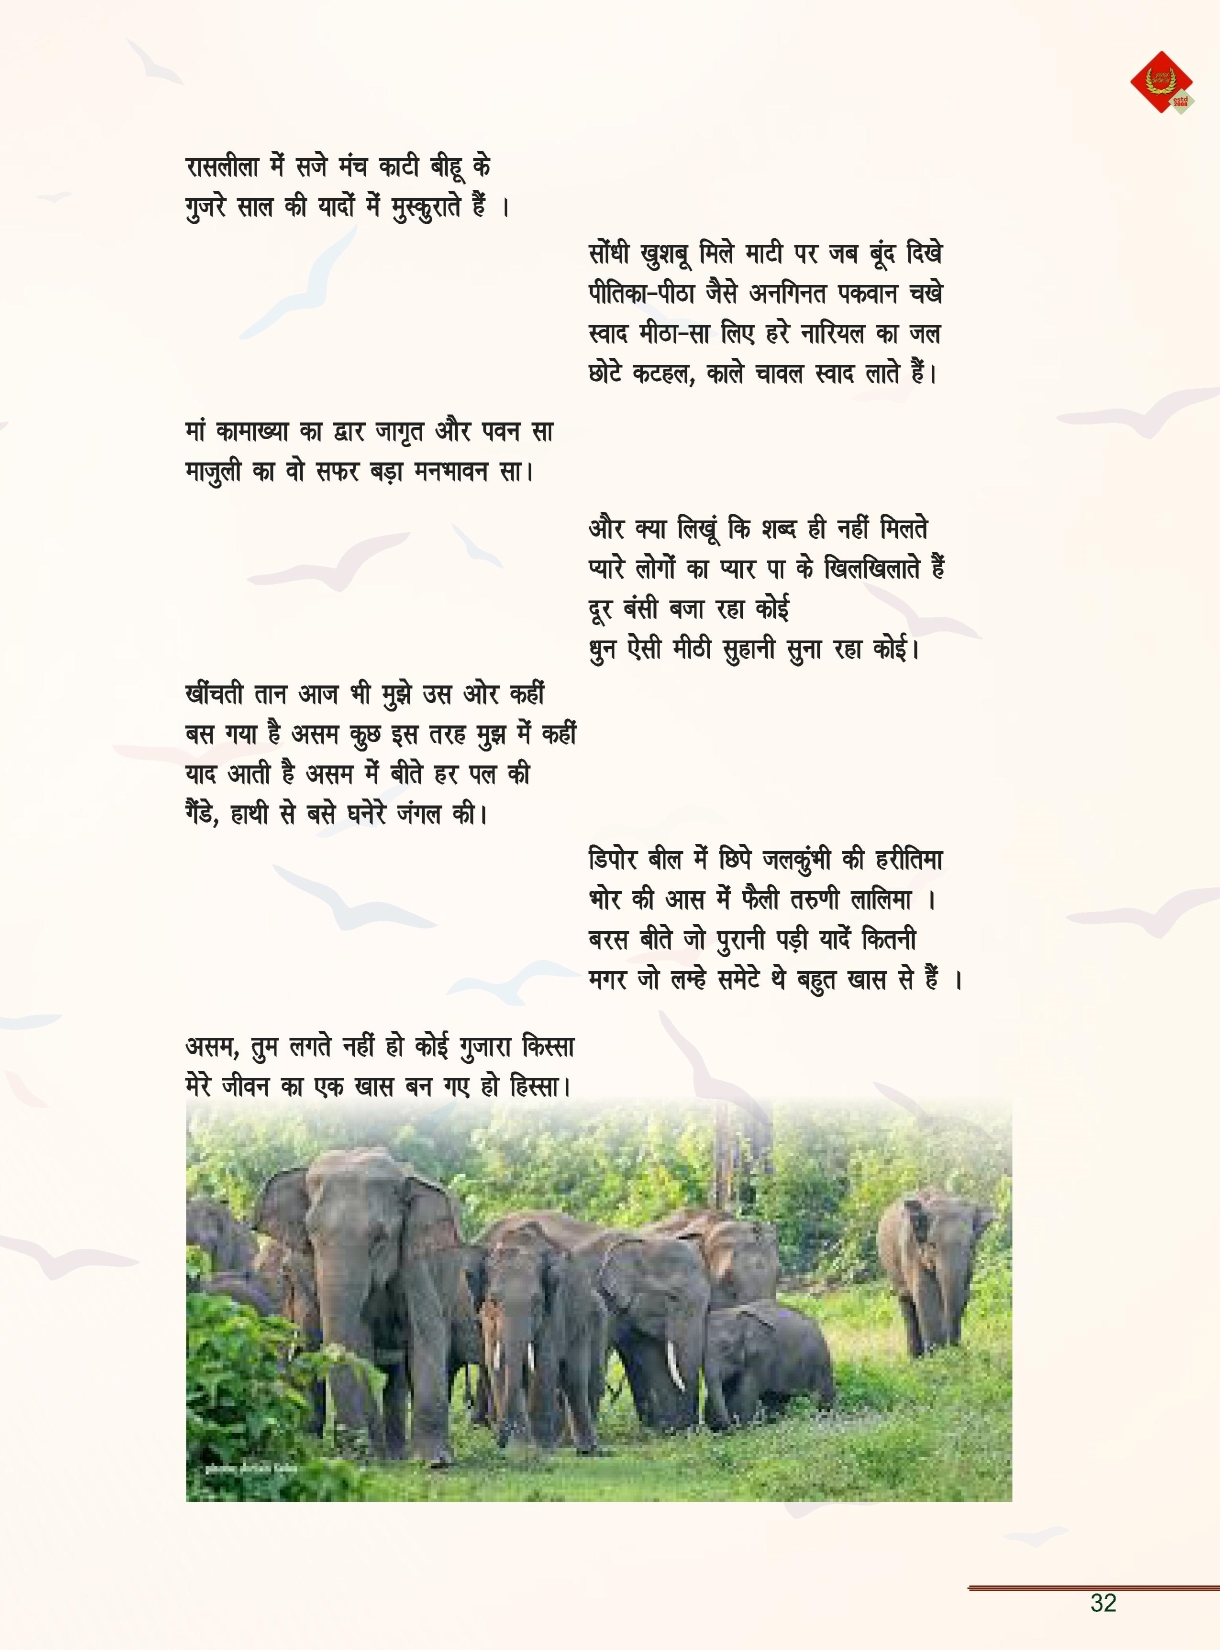 रासलीला में सजे मंच काटी बीहू के
गुजरे साल की यादों में मुस्कुराते हैं ।
सोंधी खुशबू मिले माटी पर जब बूंद दिखे
पीतिका-पीठा जैसे अनगिनत पकवान चखे
स्वाद मीठा-सा लिए हरे नारियल का जल
छोटे कटहल, काले चावल स्वाद लाते हैं।
मां कामाख्या का द्वार जागृत और पवन सा
माजुली का वो सफर बड़ा मनभावन सा।
और क्या लिखूं कि शब्द ही नहीं मिलते
प्यारे लोगों का प्यार पा के खिलखिलाते हैं
दूर बंसी बजा रहा कोई
धुन ऐसी मीठी सुहानी सुना रहा कोई।
खींचती तान आज भी मुझे उस ओर कहीं
बस गया है असम कुछ इस तरह मुझ में कहीं
याद आती है असम में बीते हर पल की
गैंडे, हाथी से बसे घनेरे जंगल की।
डिपोर बील में छिपे जलकुंभी की हरीतिमा
भोर की आस में फैली तरुणी लालिमा ।
बरस बीते जो पुरानी पड़ी यादें कितनी
मगर जो लम्हे समेटे थे बहुत खास से हैं ।
असम, तुम लगते नहीं हो कोई गुजारा किस्सा
मेरे जीवन का एक खास बन गए हो हिस्सा।
32